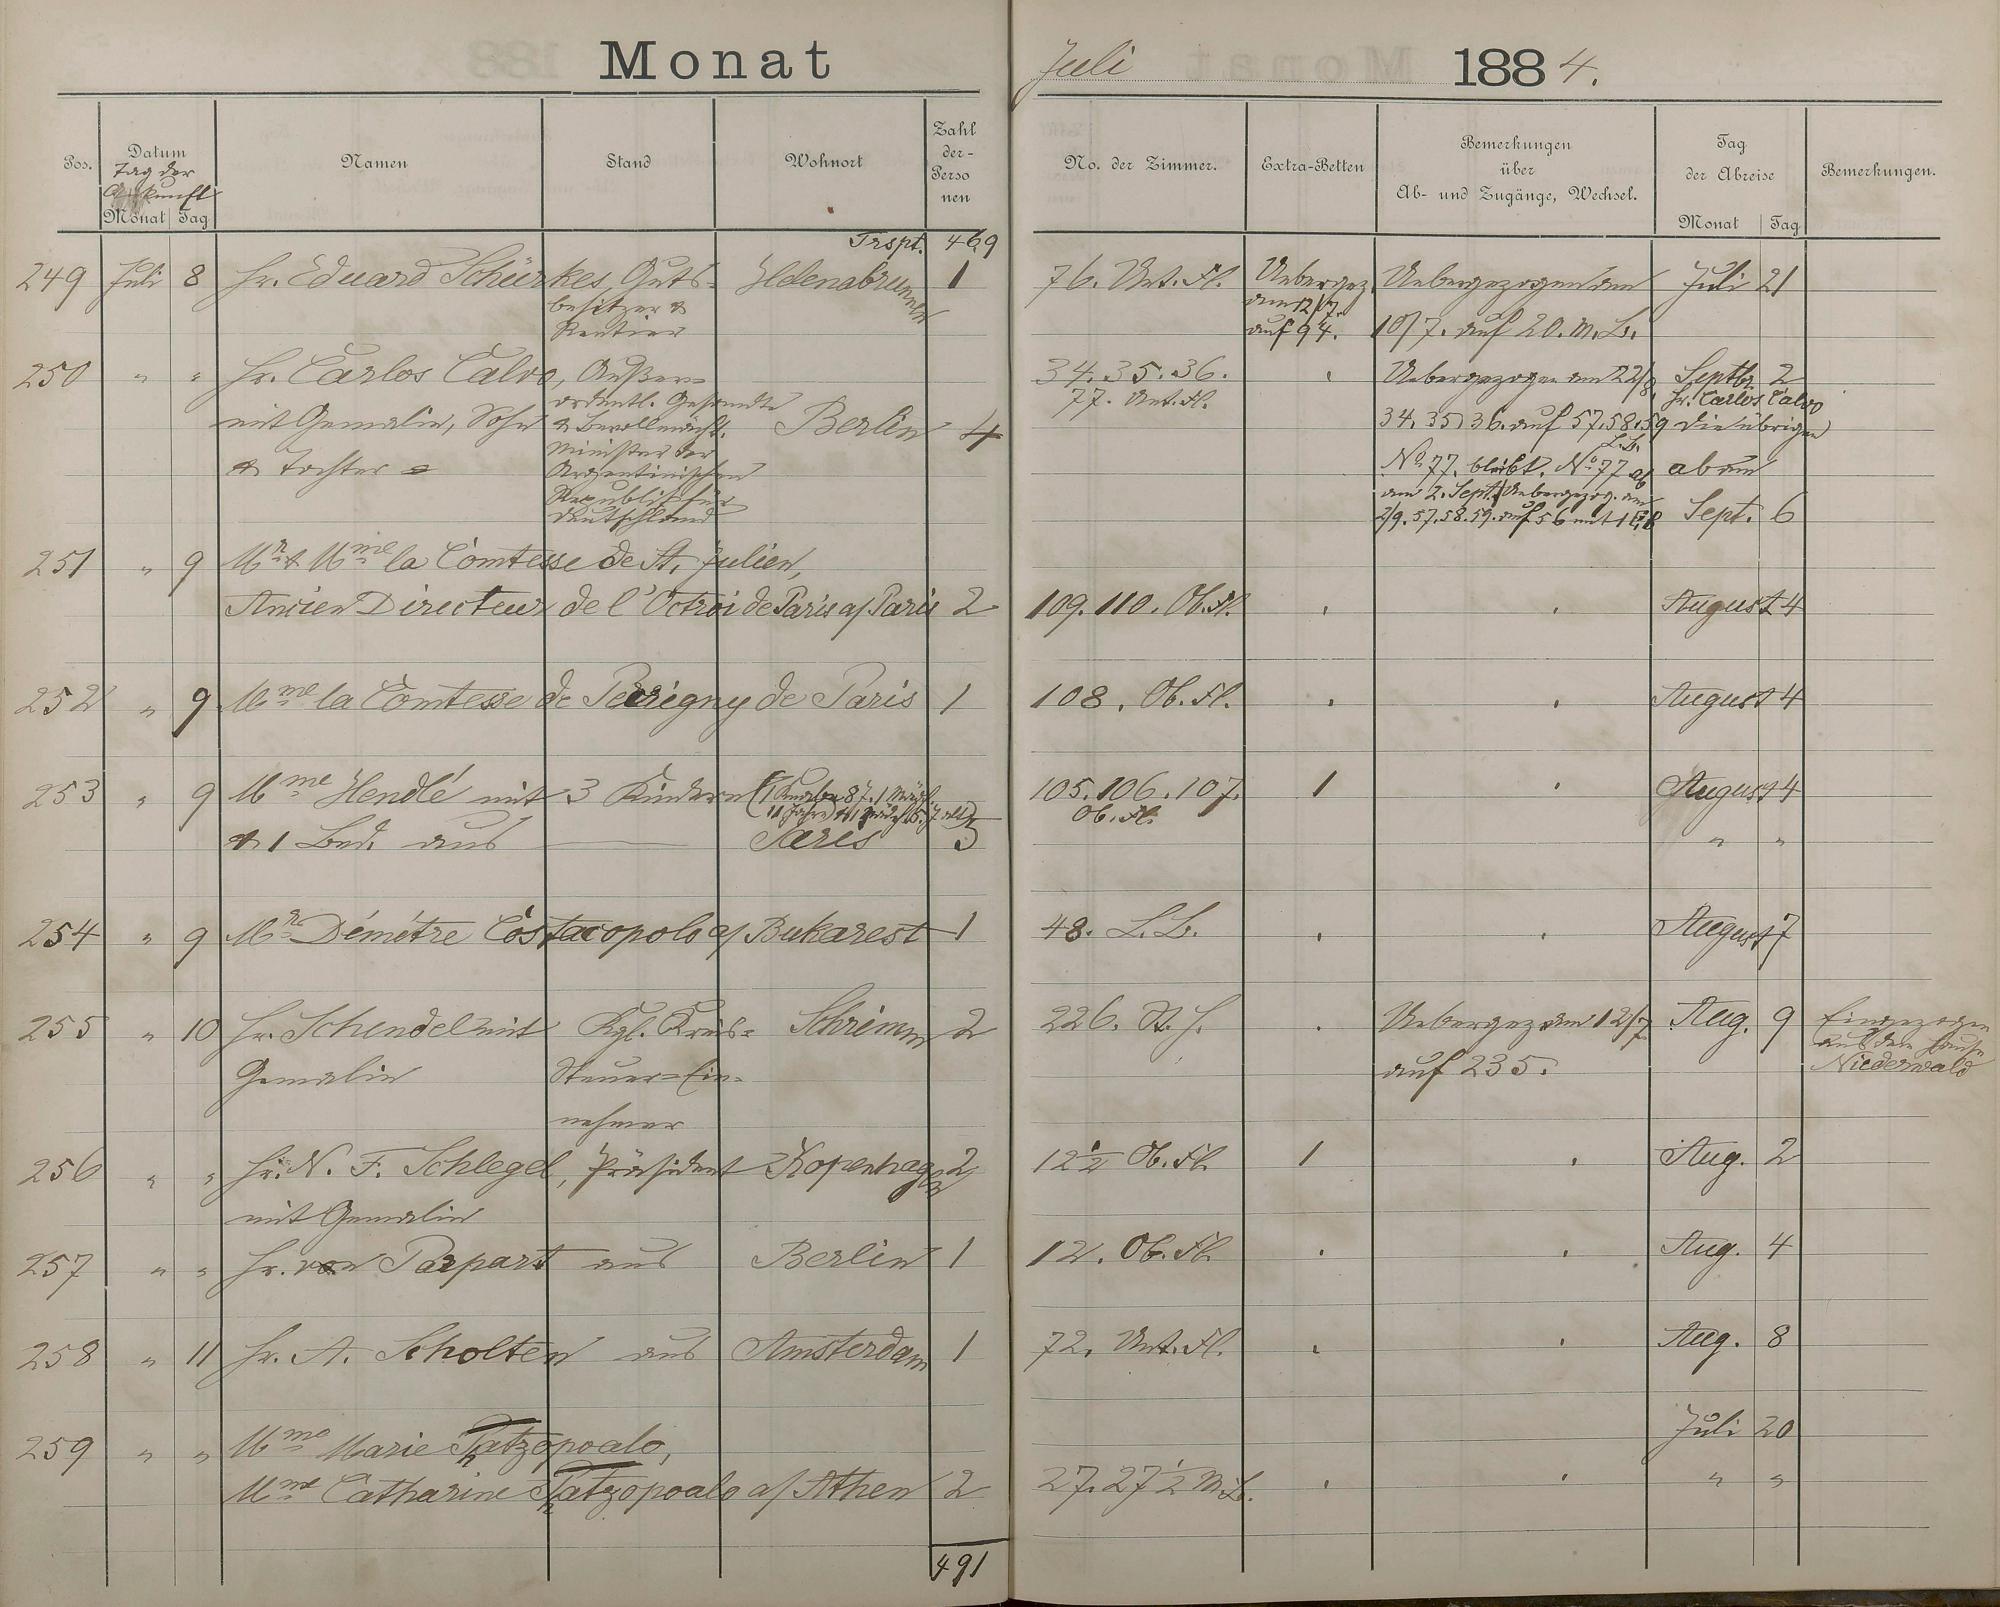 Monat Juli 1884.
Pos. Datum Namen Stand Wohnort Zahl der Personen No. der Zimmer. Extra-Betten Bemerkungen über Ab- und Zugänge, Wechsel. Tag der Abreise Bemerkungen.
Tag der
Monat Tag Monat Tag
Trspt. 469
249 Juli 8 Hr. Eduard Schürkes, Guts- 1 76. Unt. Fl. Uebergez. Uebergezogen am Juli 21
besitzer & am 12/7.
Rentier auf 94. 10/7. auf 20. M. B.
250 " " Hr. Carlos Calvo, Außer- 34. 35. 36. Uebergezogen am 22/8. Septbr. 2
ordentl. Gesandte 77. Unt. Fl. Hr. Carlos Calvo
mit Gemalin, Sohn & Bevollmächt. Berlin 4 34. 35. 36. auf 57. 58. 59 die übrigen
Minister der L. B.
& Tochter Argentinischen No. 77. bleibt. No. 77 ab ab am
Republik für am 2. Sept. Uebergezog. am
Deutschland 2/9. 57. 58. 59. auf 56 mit 1 Sept. 6
251 " 9 Mr. & Mme la Comtesse de St. Julien,
Ancien Directeur de l'Octroi de Paris a/ Paris 2 109. 110. Ob. Fl. August 4
252 " 9 Mme la Comtesse de Perrigny de Paris 1 108. Ob. Fl. August 4
253 " 9 Mme Hendlé mit 3 Kindern (1 Knabe 8 J. 1 Mädch. 105. 106. 107. 1 August 4
11 Jahre) & 1 Mädch. 5 J. alt) Ob. Fl.
& 1 Bed. aus Paris 5 " "
254 " 9 Mr. Démètre Costacopolo a/ Bukarest 1 48. L. B. August 7
255 " 10 Hr. Schendel mit Kgl. Kreis- Schrimm 2 226. St. H. Uebergez. am 12/7 Aug. 9 Eingezogen
aus dem Hause
Gemalin Steuer-Ein- auf 235. Niederwald
nehmer
256 " " Hr. N. F. Schlegel, Präsident Kopenhagen 2 12 1/2 Ob. Fl. 1 Aug. 2
mit Gemalin
257 " " Hr. von Parpart aus Berlin 1 12. Ob. Fl. Aug. 4
258 " 11 Hr. A. Scholten aus Amsterdam 1 72. Unt. Fl. Aug. 8
259 " " Mme Marie Patzopoalo, Juli 20
Mme Catharine Patzopoalo a/ Athen 2 27. 27 1/2 M. B. " "
491